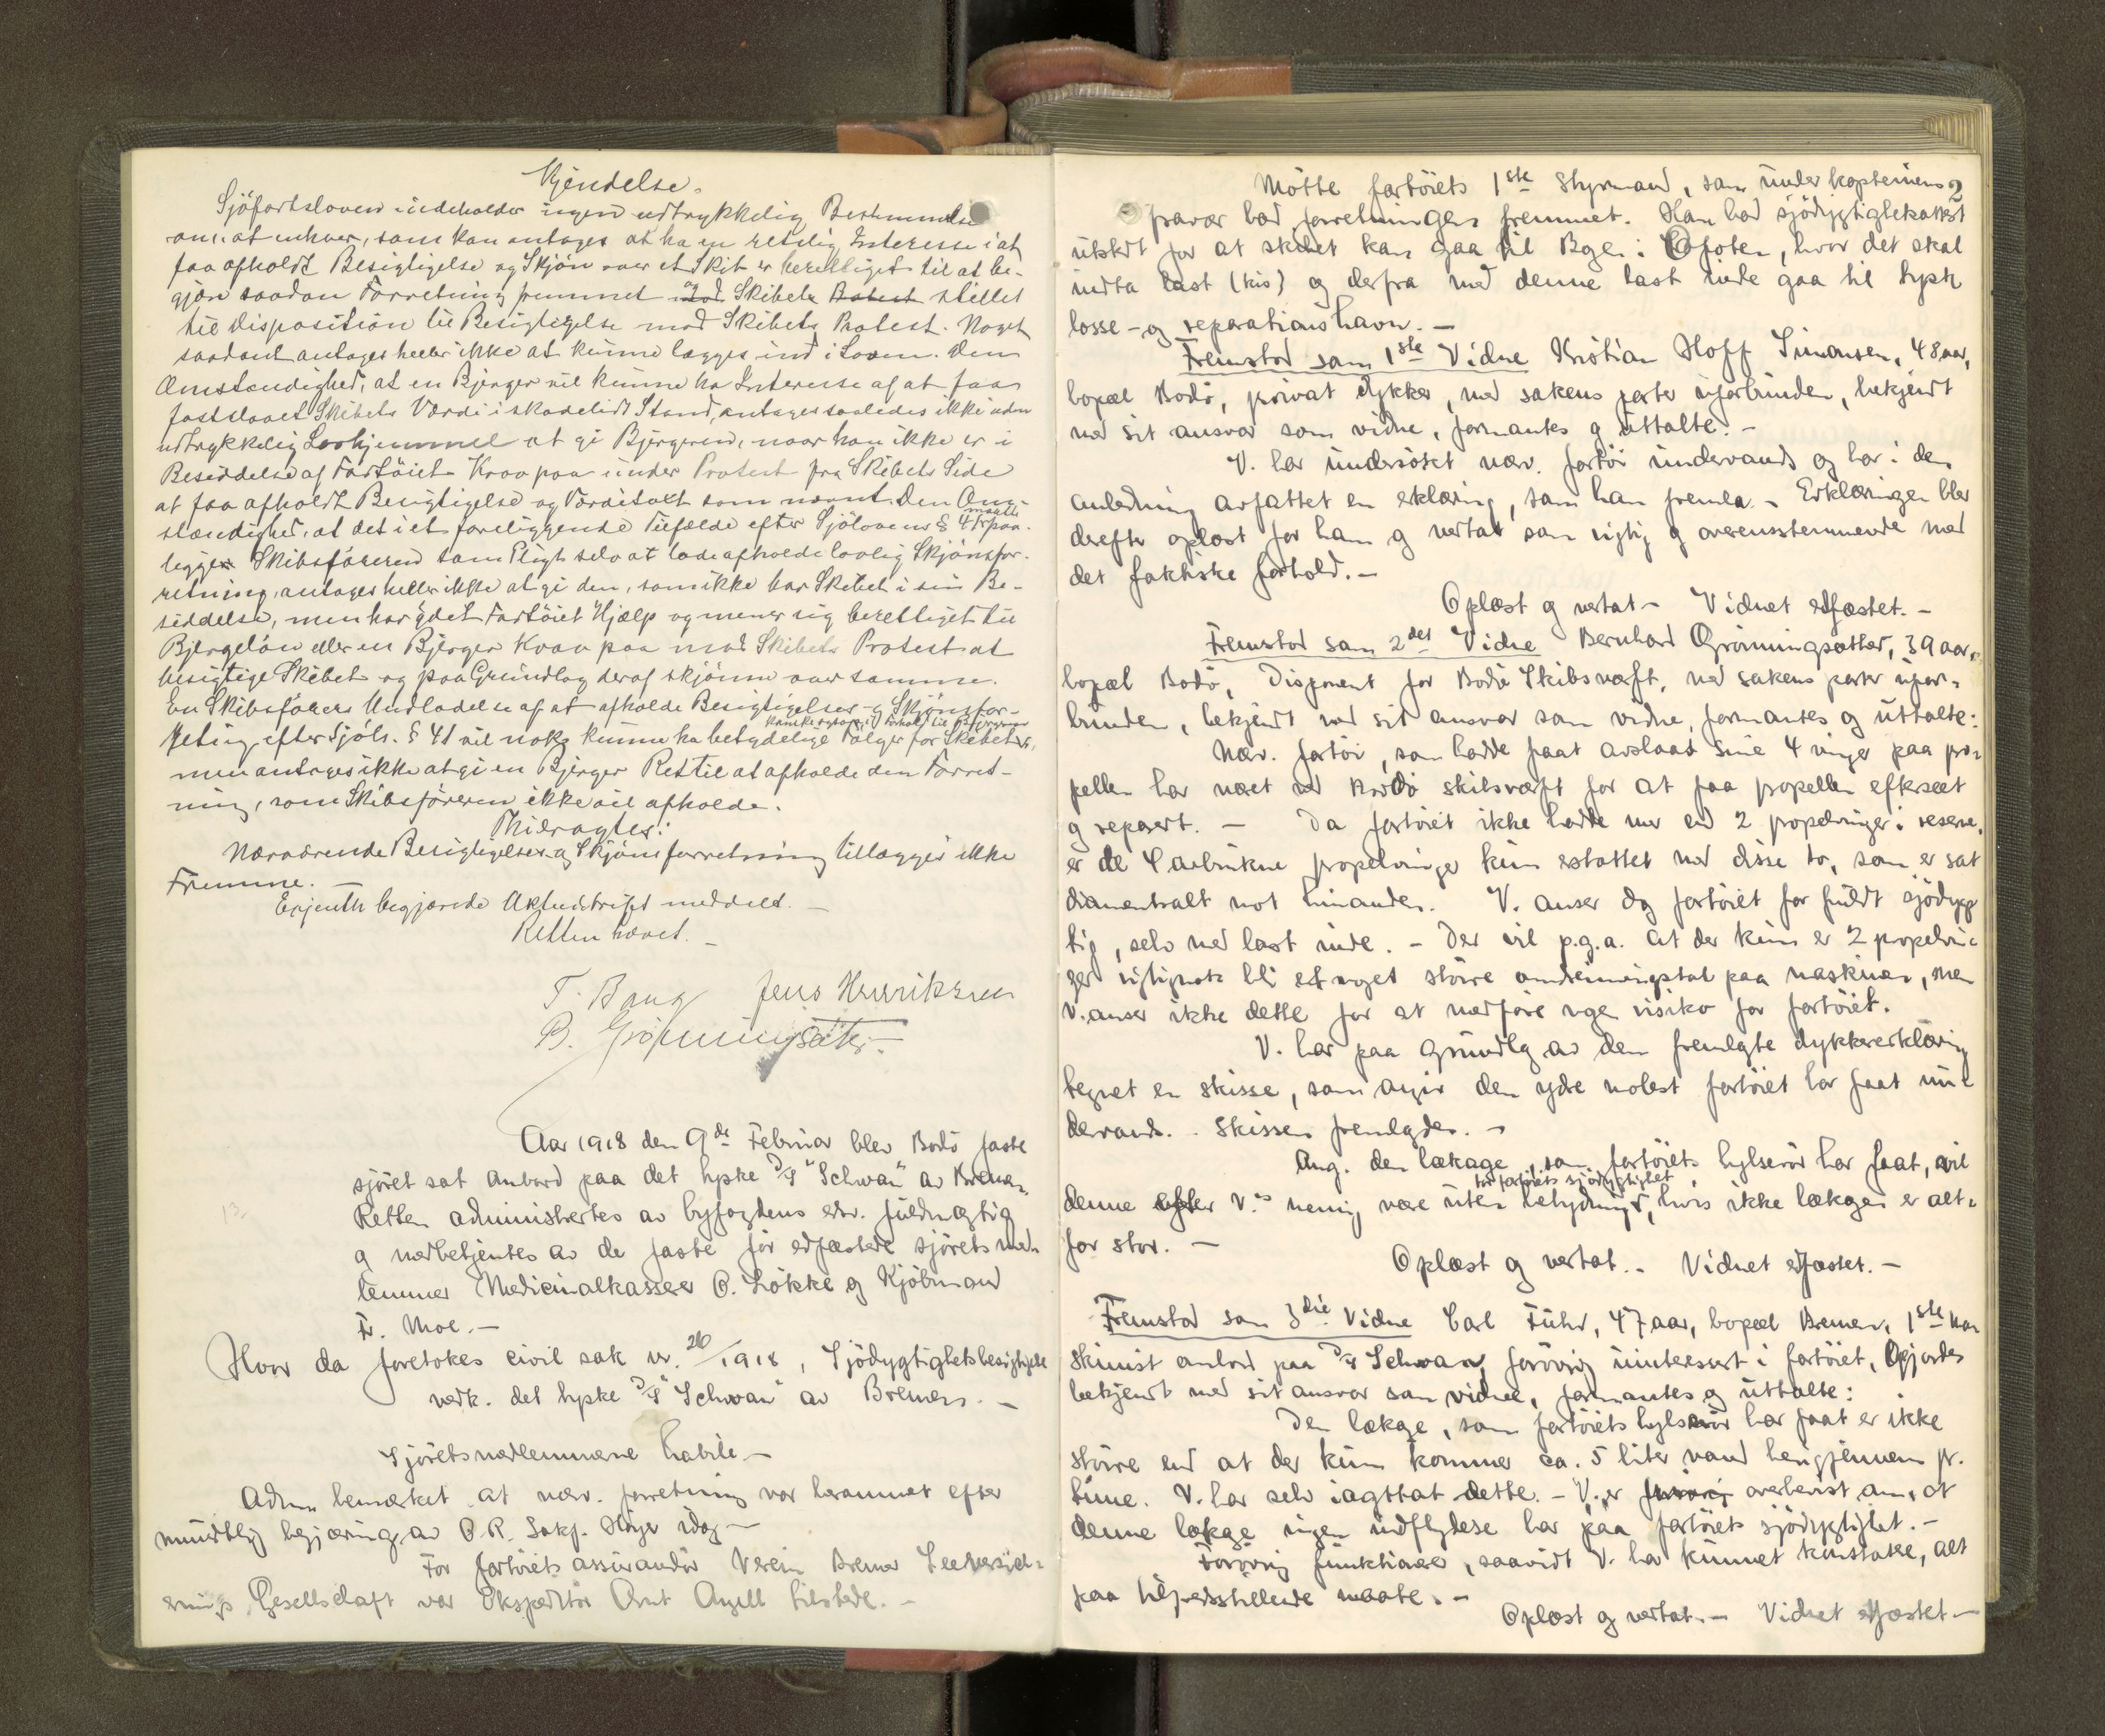 Kjendelse.
Sjöfartsloven indeholder ingen udtrykkelig Bestemmelse
om, at enhver, som kan antages at ha en retslig Interesse i at
faa afholdt Besigtigelse og Skjön over et Skib er berettiget til at be-
gjære saadan Forretning fremmet og Skibets stillet
til Disposition til Besigtigelse mod Skibets Protest. Noget
saadant antages heller ikke at kunne lægges ind i Loven. Den
Omstændighed, at en Bjerger vil kunne ha Interesse af at faa
fastslaaet Skibets Værdi i skadelidt Stand, antages saaledes ikke uden
udtrykkelig Lovhjemmel at gi Bjergeren, naar han ikke er i
Besiddelse af Fartöiet Krav paa under Protest fra Skibets Side
at faa afholdt Besigtigelse og Værditakt som nævnt. Den Om-
stændighed, at det i et foreliggende Tilfælde efter Sjölovens § 41 maatte paa-
ligge Skibsföreren som Pligt selv at lade afholde lovlig Skjönsfor-
retning, antages heller ikke at gi den, som ikke har Skibet i sin Be-
siddelse, men har ydet Fartöiet Hjælp og mener sig berettiget til
Bjergelön eller en Bjerger Krav paa mod Skibets Protest at
besigtige Skibet og paa Grundlag deraf skjönne over samme.
En Skibsförers Undladelse af at afholde Besigtigelses- og Skjönsfor-
retning efter Sjöls. § 41 vil nok kunne ha betydelige Fölger for Skibet,
kanske ogsaa i Forhold til Bjergeren
men antages ikke at gi en Bjerger Ret til at afholde den Forret-
ning, som Skibsföreren ikke vil afholde.
Thi eragtes:
Nærværende Besigtigelses- og Skjönsforretning tillægges ikke
Fremme. —
Egenth begjærede Aktudskrift meddelt. —
Retten hævet. —
T. Bang Jens Henriksen
B. Grönningsæter.
Aar 1918 den 9de Februar blev Bodö faste
sjöret sat ombord paa det tyske D/S "Schwan" av Bremen.
Retten administrertes av byfogdens edsv. fuldmægtig
og medbetjentes av de faste för edfæstede sjöretsmed-
lemmer Medicinalkasserer O. Lökke og Kjöbmand
Fr. Moe. —
Hvor da foretokes civil sak nr. 20/1918, Sjödygtighetsbesigtigelse
vedk. det tyske D/S "Schwan" av Bremen. —
Sjöretsmedlemmerne habile —
Adm. bemerket at nærv. forretning var berammet efter
mundtlig begjæring av O.R. Sakf. Höye idag —
For fartöiets assurandör Verein Bremer Seeversich-
erungs Gesellschaft var Ekspeditör Arnt Angell tilstede. —
2
Mötte fartöiets 1ste Styrmand, som under kapteinens
fravær bad forretningen fremmet. Han bad sjödygtighetsattest
utstedt for at skibet kan gaa til Bogen i Ofoten, hvor det skal
indta last (kis) og derfra med denne last inde gaa til tysk
losse- og reparationshavn. —
Fremstod som 1ste Vidne Kristian Hoff Simonsen, 48 aar,
bopæl Bodö, privat dykker, med sakens parter uforbunden, bekjendt
med sit ansvar som vidne, formantes og uttalte: —
V. har undersöket nærv. fartöi undervands og har i den
anledning avfattet en erklæring, som han fremla. — Erklæringen blev
derefter oplæst for ham og vedtat som rigtig og overensstemmende med
det faktiske forhold. —
Oplæst og vedtat — Vidnet edfæstet. —
Fremstod som 2det Vidne Bernhard Grönningsæther, 39 aar,
bopæl Bodö, Disponent for Bodö Skibsværft, med sakens parter ufor-
bunden, bekjendt med sit ansvar som vidne, formantes og uttalte:
Nærv. fartöi, som hadde faat avslaat sine 4 vinger paa pro-
pellen har været ved Bodö skibsværft for at faa propellen efterseet
og reparert. — Da fartöiet ikke hadde mer end 2 propelvinger i reserve,
er de 4 avbrukne propelvinger kun erstattet med disse to, som er sat
diamentralt mot hinanden. V. anser dog fartöiet for fuldt sjödyg-
tig, selv med last inde. — Der vil p.g.a. at der kun er 2 propelvin-
ger rigtignok bli et noget större omdreiningstal paa maskinen, men
V. anser ikke dette for at medföre nogen risiko for fartöiet.
V. har paa grundlag av den fremlagte dykkererklæring
tegnet en skisse, som angir den ydre molest fartöiet har faat un-
dervands. Skissen fremlagdes. —
Ang. den lækage, som fartöiets hylserör har faat, vil
denne efter V.s mening være uten betydning for fartöiets sjödygtighet, hvis ikke lækagen er alt-
for stor. —
Oplæst og vedtat. — Vidnet edfæstet. —
Fremstod som 3die Vidne Carl Führ, 47 aar, bopæl Bremen, 1ste ma-
skinist ombord paa D/S Schwan, forövrig uinteressert i fartöiet, Gjordes
bekjendt med sit ansvar som vidne, formantes og uttalte:
Den lækage, som fartöiets hylserör har faat er ikke
större end at der kun kommer ca. 5 liter vand herigjennem pr.
time. V. har selv iagttat dette. — V. er overbevist om, at
denne lækage ingen indflydelse har paa fartöiets sjödygtighet. —
Forövrig funktionerer, saavidt V. har kunnet konstatere, alt
paa tilfredsstillende maate. —
Oplæst og vedtat. — Vidnet edfæstet —